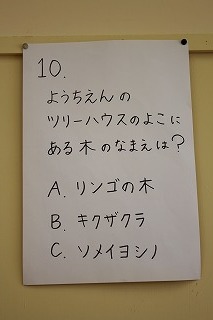 10.
ようちえんの
ツリーハウスのよこに
ある木のなまえは?
A. リンゴの木
B. キクザクラ
C. ソメイヨシノ